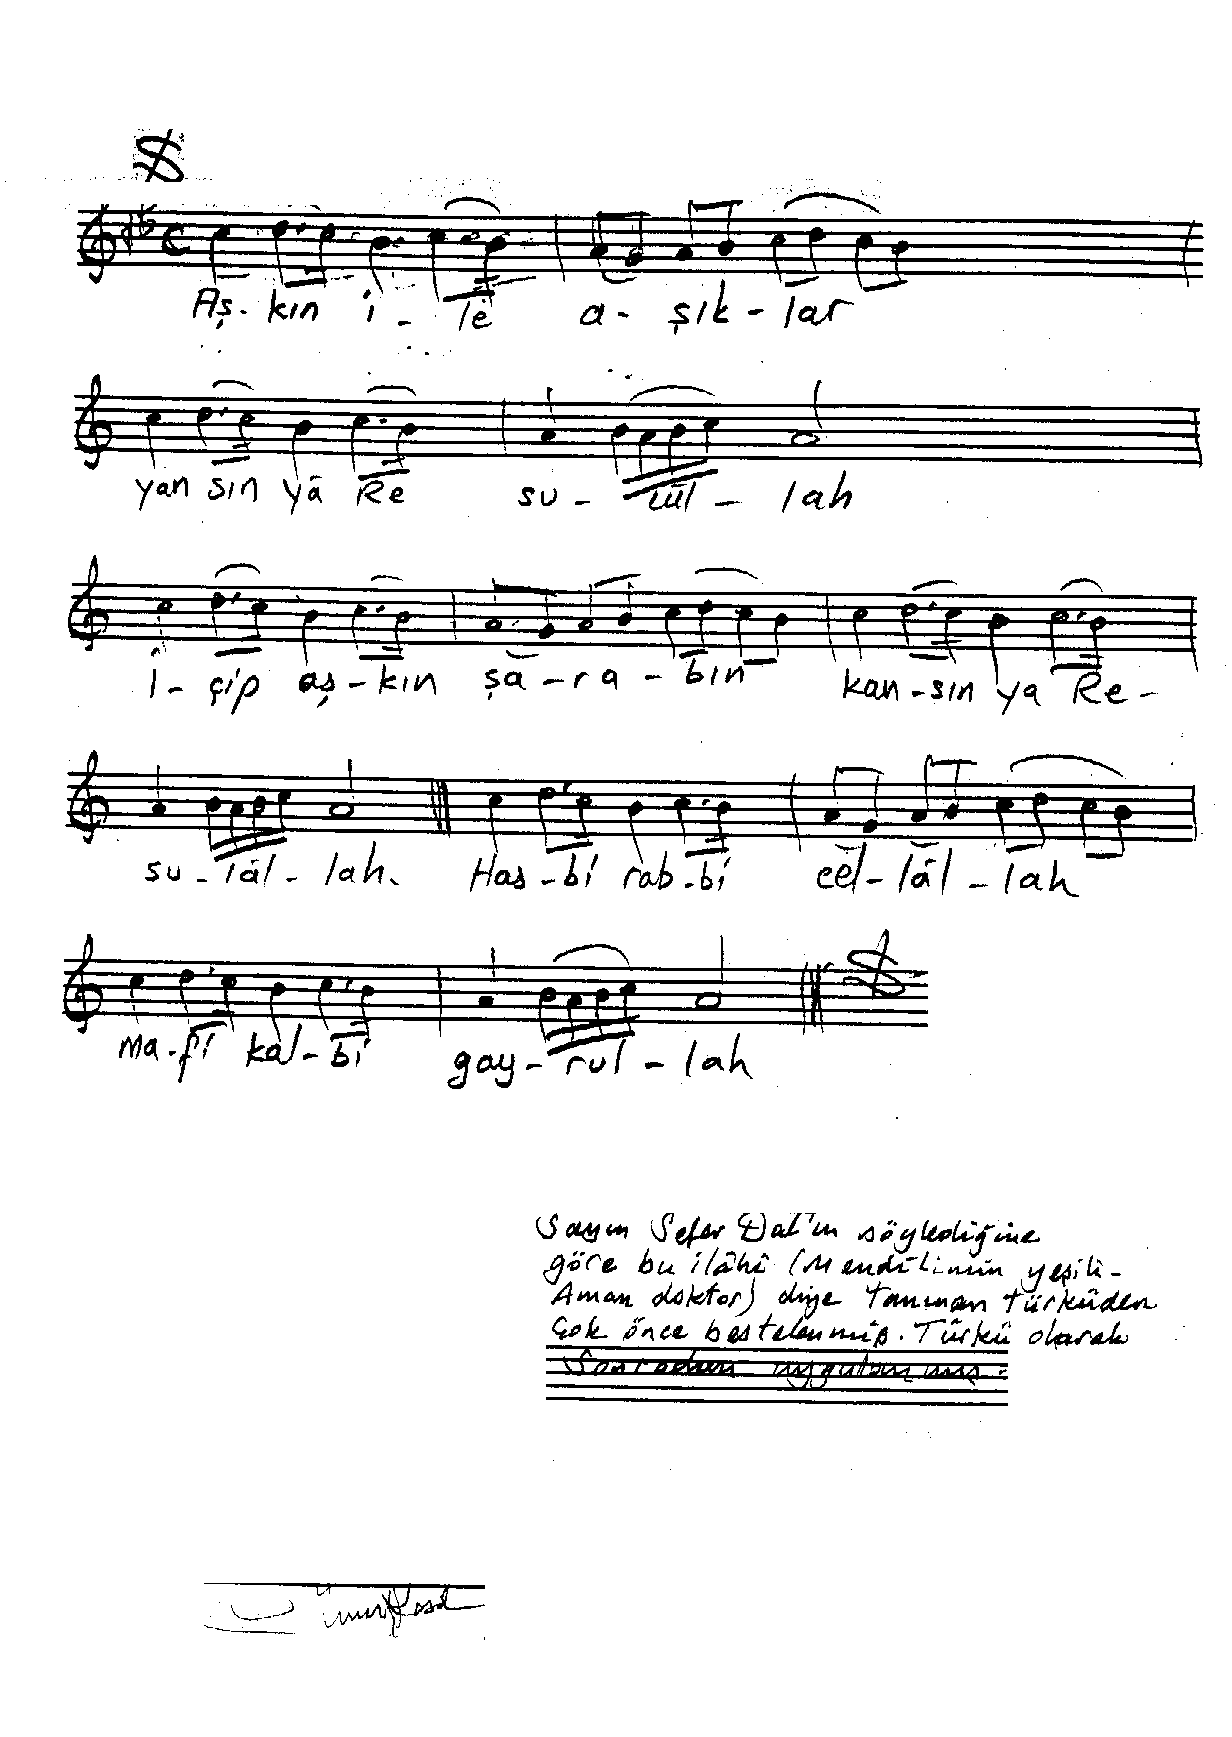 Aş-kın i-le a-şık-lar
yan sın yâ Re su-lül-lah
i-çip aş-kın şa-ra-bın kan-sın ya Re-
su-lâl-lah. Has-bi rab-bi cel-lâl-lah
ma-fi kal-bi gay-rul-lah
Sayın Sefer Dal'ın söylediğine
göre bu ilâhî (Mendilimin yeşili-
Aman doktor) diye tanınan türküden
Çok önce bestelenmiş. Türkü olarak
Sonradan uygulanmış.